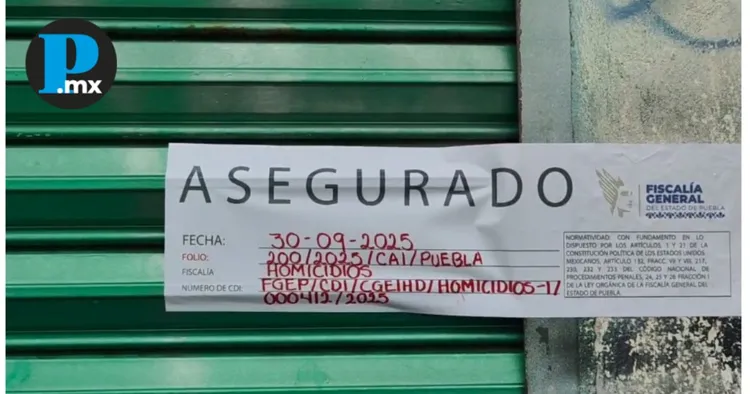 P.mx
ASEGURADO
FISCALÍA
GENERAL
DEL ESTADO DE PUEBLA
FECHA: 30-09-2025
FOLIO: 200/2025/CAI/PUEBLA
FISCALÍA HOMICIDIOS
NÚMERO DE CDI: FGEP/CDI/CGEIHD/HOMICIDIOS-1/
000412/2025
NORMATIVIDAD: CON FUNDAMENTO EN LO
DISPUESTO POR LOS ARTÍCULOS, 1 Y 21 DE LA
CONSTITUCIÓN POLÍTICA DE LOS ESTADOS UNIDOS
MEXICANOS, ARTÍCULO 132, FRACC. VII Y VIII, 217,
230, 232 Y 233 DEL CÓDIGO NACIONAL DE
PROCEDIMIENTOS PENALES, 24, 25 Y 26 FRACCIÓN I
DE LA LEY ORGÁNICA DE LA FISCALÍA GENERAL DEL
ESTADO DE PUEBLA.